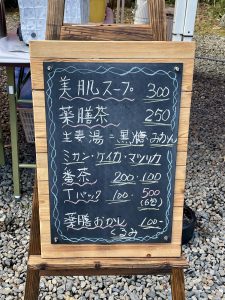 美肌スープ 300
薬膳茶 250
生姜湯=黒糖・みかん
ミカン・ケイカ・マツリカ
番茶 200・100
Tバック 100・500
(6包)
薬膳おかし 100-
くるみ